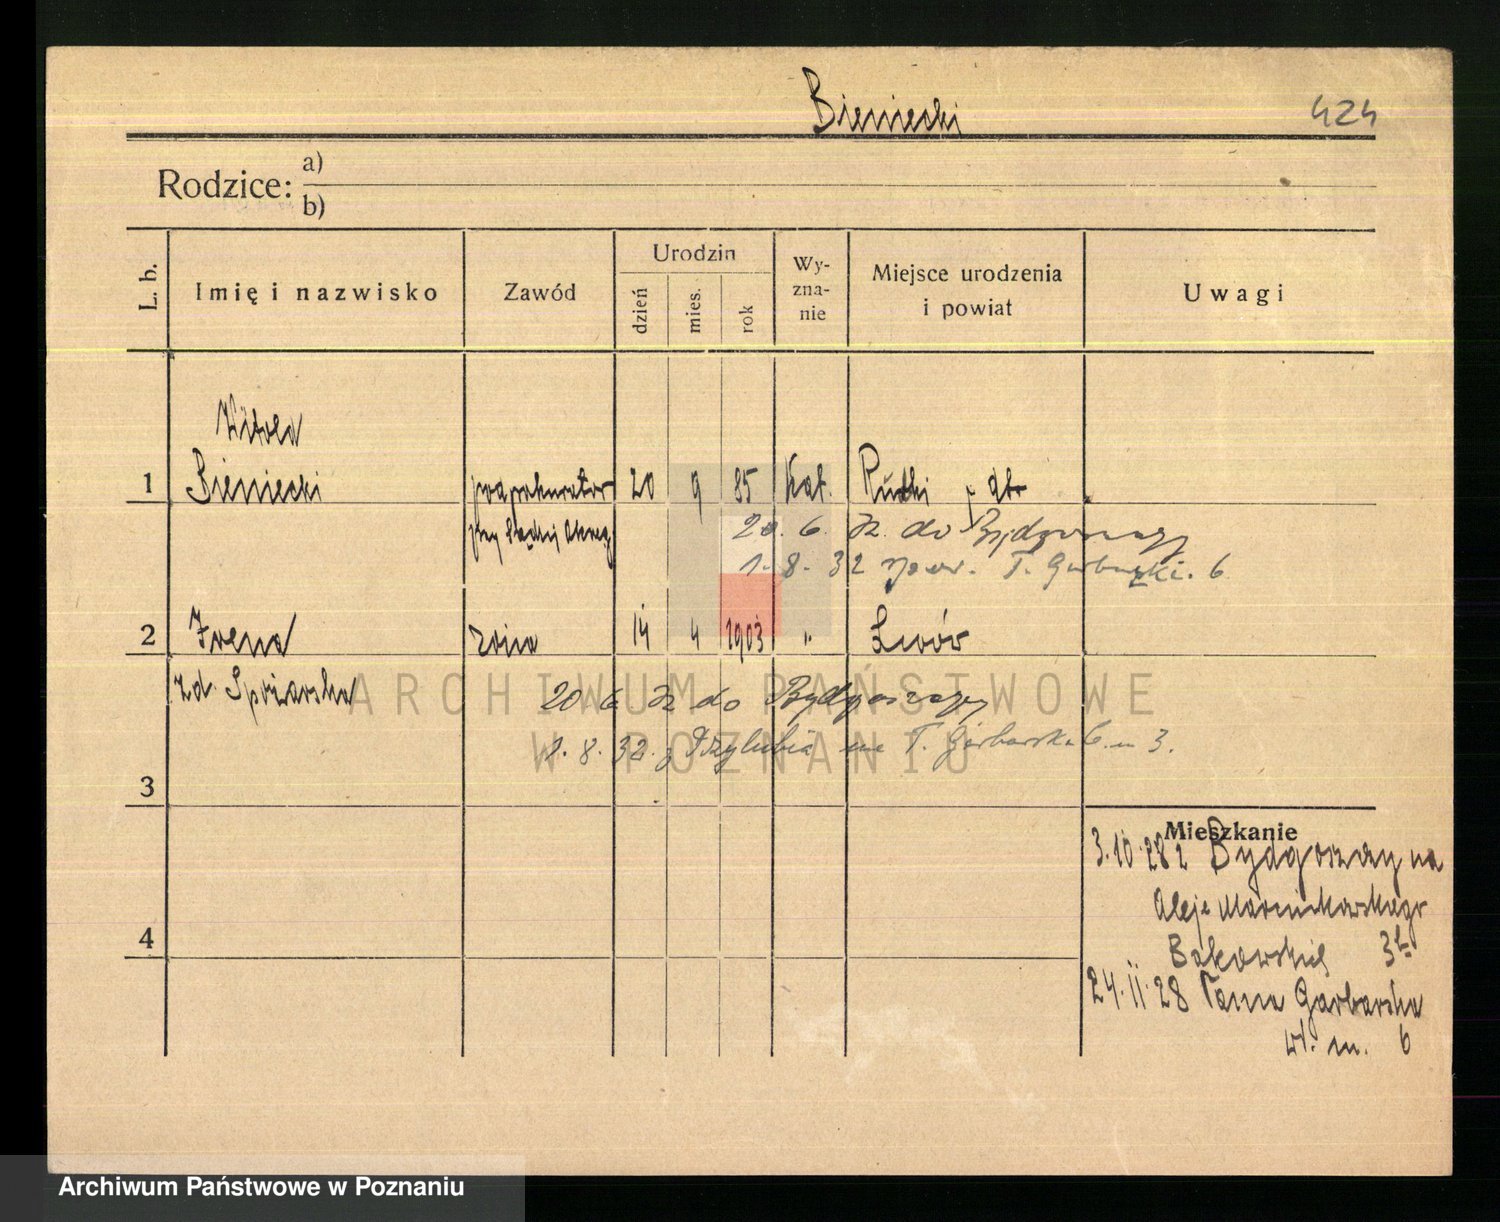 Bieniecki 424
Rodzice: a)
b)
L. b. Imię i nazwisko Zawód Urodzin dzień mies. rok Wy-zna-nie Miejsce urodzenia i powiat Uwagi
Witold
1 Bieniecki podprokurator 20 9 85 Kat. Rudki
przy Sądzie Okręg
20. 6. do Bydgoszczy
1. 8. 32 T. 6
2 Irena żona 14 4 1903 " Lwów
zd. Spożarska
20 6 do Bydgoszczy
1. 8. 32. z Przyłubia na T. Garbarska 6. m 3.
3
Mieszkanie
3.10.28 z Bydgoszczy na
Aleje Marcinkowskiego
4
Bąkowskiej
24.11.28 Tama Garbarska
wł. m. 6
ARCHIWUM PAŃSTWOWE
W POZNANIU
Archiwum Państwowe w Poznaniu